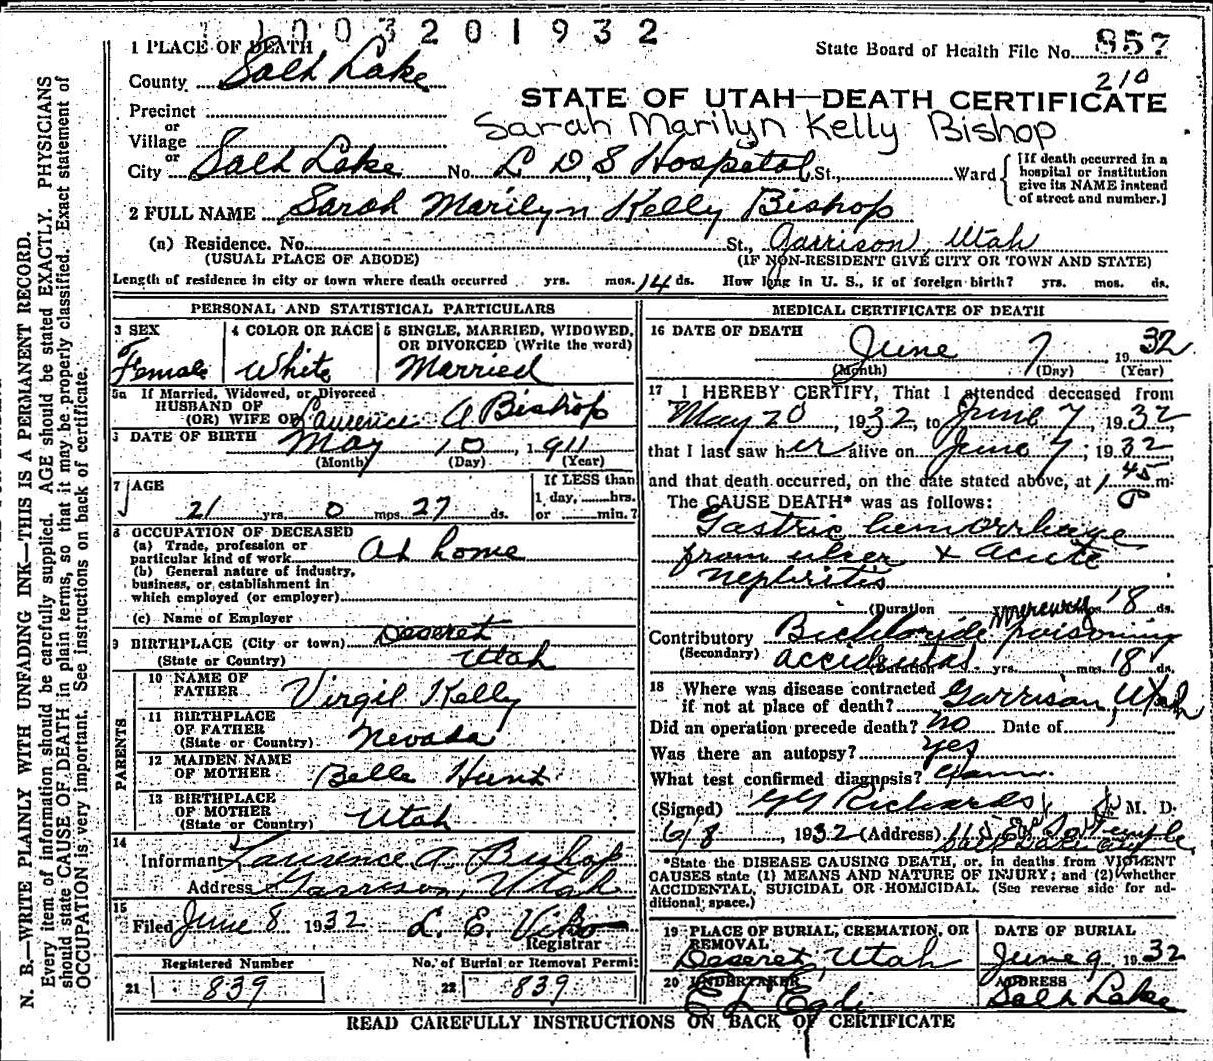 1003201932
1 PLACE OF DEATH
State Board of Health File No. 857
County Salt Lake
210
STATE OF UTAH—DEATH CERTIFICATE
Precinct
or
Sarah Marilyn Kelly Bishop
Village
or
City Salt Lake No. L D S Hospital St., Ward
[If death occurred in a
hospital or institution
give its NAME instead
of street and number.]
2 FULL NAME Sarah Marilyn Kelly Bishop
(a) Residence. No. St., Garrison, Utah
(USUAL PLACE OF ABODE) (IF NON-RESIDENT GIVE CITY OR TOWN AND STATE)
Length of residence in city or town where death occurred yrs. mos. 14 ds. How long in U. S., if of foreign birth? yrs. mos. ds.
PERSONAL AND STATISTICAL PARTICULARS
3 SEX
Female
4 COLOR OR RACE
White
5 SINGLE, MARRIED, WIDOWED,
OR DIVORCED (Write the word)
Married
5a If Married, Widowed, or Divorced
HUSBAND OF
(OR) WIFE OF Laurence A Bishop
6 DATE OF BIRTH May 10, 1911
(Month) (Day) (Year)
7 AGE
21 yrs. 0 mos. 27 ds.
If LESS than
1 day, hrs.
or min.?
8 OCCUPATION OF DECEASED
(a) Trade, profession or
particular kind of work At home
(b) General nature of industry,
business, or establishment in
which employed (or employer)
(c) Name of Employer
9 BIRTHPLACE (City or town) Deseret
(State or Country) Utah
PARENTS
10 NAME OF
FATHER Virgil Kelly
11 BIRTHPLACE
OF FATHER
(State or Country) Nevada
12 MAIDEN NAME
OF MOTHER Belle Hunt
13 BIRTHPLACE
OF MOTHER
(State or Country) Utah
14
Informant Laurence A. Bishop
Address Garrison, Utah
15
Filed June 8 1932 L. E. Viko
Registrar
Registered Number No. of Burial or Removal Permit
21 839 22 839
MEDICAL CERTIFICATE OF DEATH
16 DATE OF DEATH
June 7 1932
(Month) (Day) (Year)
17 I HEREBY CERTIFY, That I attended deceased from
May 20, 1932, to June 7, 1932
that I last saw her alive on June 7; 1932
and that death occurred, on the date stated above, at 1 45 P m.
The CAUSE DEATH* was as follows:
Gastric hemorrhage
from ulcer & acute
nephritis
(Duration mos. 18 ds.
mercury
Contributory Bichloride poisoning
(Secondary) accidental (Duration yrs. mos. 18 ds.
18 Where was disease contracted
if not at place of death? Garrison, Utah
Did an operation precede death? no Date of
Was there an autopsy? yes
What test confirmed diagnosis?
(Signed) G G Richards M. D.
6/8, 1932 (Address) 115 E So Temple
Salt Lake City
*State the DISEASE CAUSING DEATH, or, in deaths from VIOLENT
CAUSES state (1) MEANS AND NATURE OF INJURY; and (2) whether
ACCIDENTAL, SUICIDAL OR HOMICIDAL. (See reverse side for ad-
ditional space.)
19 PLACE OF BURIAL, CREMATION, OR
REMOVAL
Deseret, Utah
DATE OF BURIAL
June 9 1932
20 UNDERTAKER
ADDRESS
Salt Lake
READ CAREFULLY INSTRUCTIONS ON BACK OF CERTIFICATE
N. B.—WRITE PLAINLY WITH UNFADING INK—THIS IS A PERMANENT RECORD.
Every item of information should be carefully supplied. AGE should be stated EXACTLY. PHYSICIANS
should state CAUSE OF DEATH in plain terms, so that it may be properly classified. Exact statement of
OCCUPATION is very important. See instructions on back of certificate.